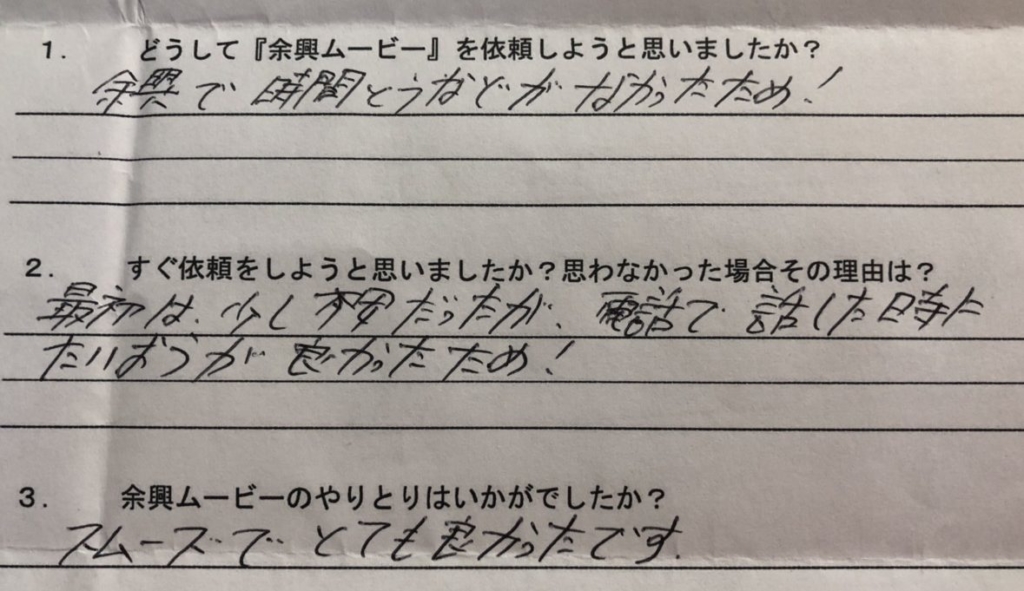 1. どうして『余興ムービー』を依頼しようと思いましたか？
余興で時間とうなどがなかったため！
2. すぐ依頼をしようと思いましたか？思わなかった場合その理由は？
最初は、少し不安だったが、電話で話した時に
たいおうが良かったため！
3. 余興ムービーのやりとりはいかがでしたか？
スムーズでとても良かったです.